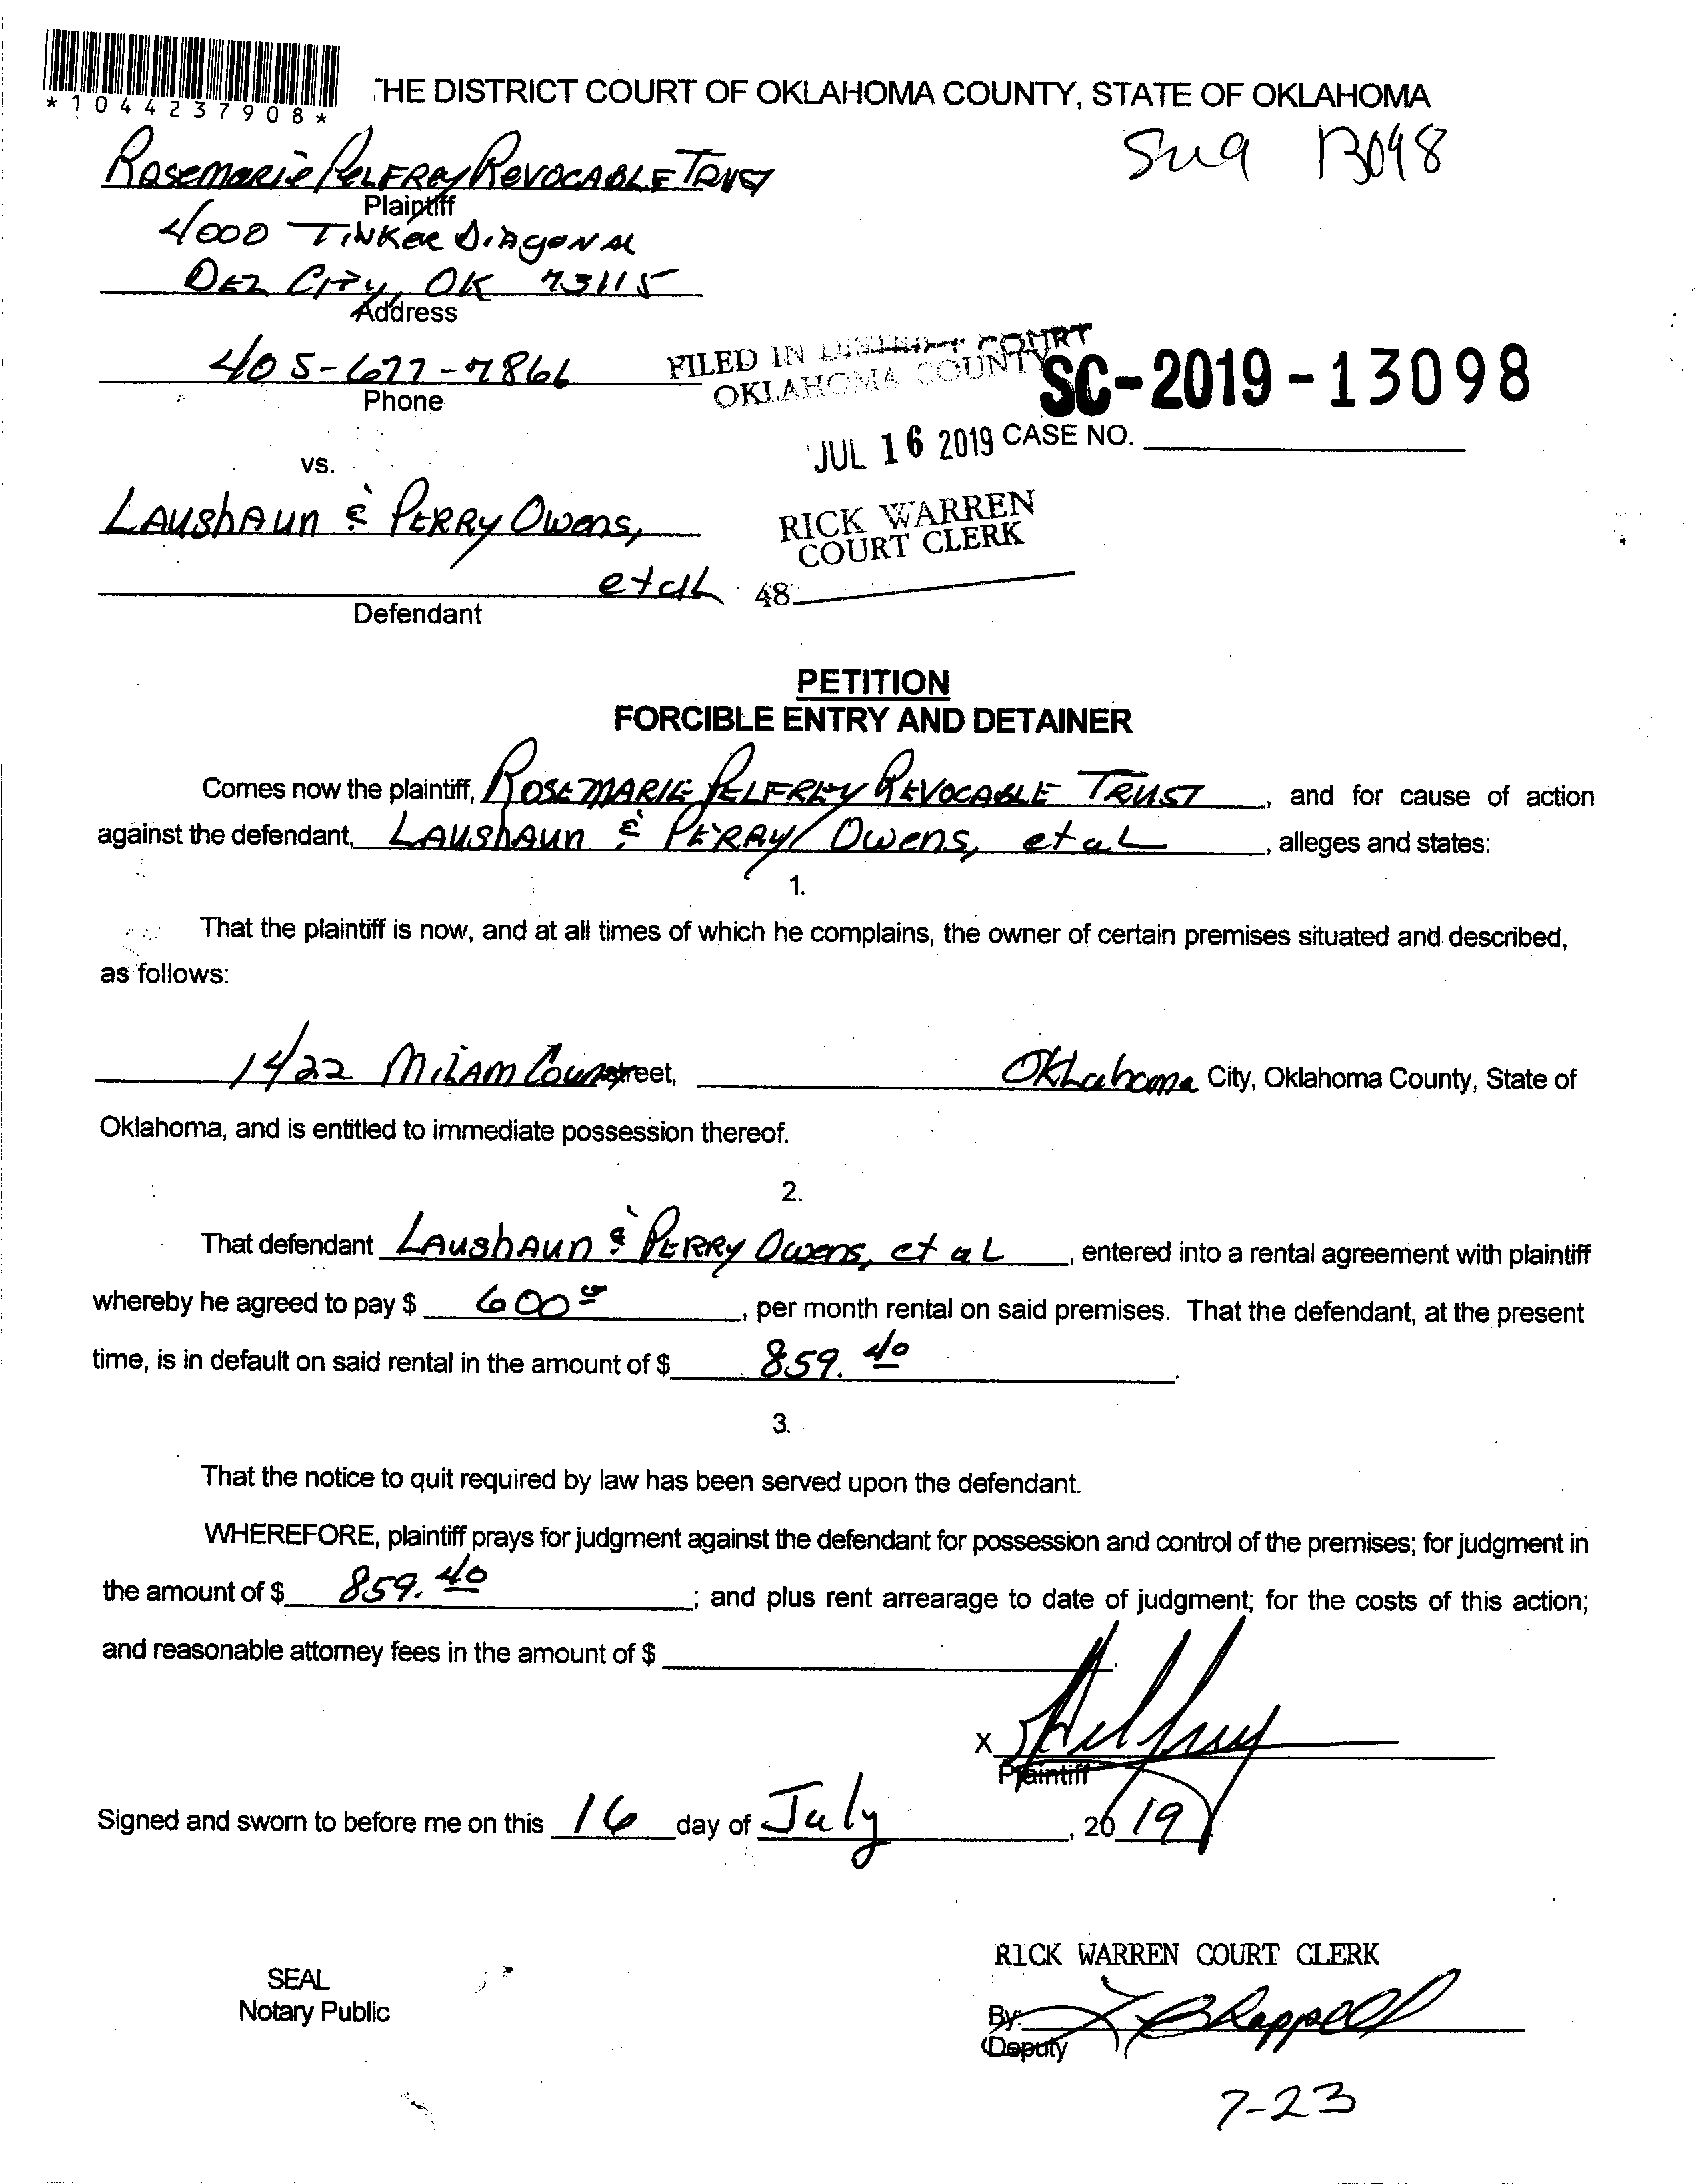 *1044237908*
THE DISTRICT COURT OF OKLAHOMA COUNTY, STATE OF OKLAHOMA
13098
Rosemarie Pelfrey Revocable Trust
Plaintiff
4000 Tinker Diagonal
Del City, OK 73115
Address
405-677-7866
Phone
FILED IN DISTRICT COURT
OKLAHOMA COUNTY
SC-2019-13098
JUL 16 2019 CASE NO.
vs.
Laushaun & Perry Owens,
et al
RICK WARREN
COURT CLERK
48
Defendant
PETITION
FORCIBLE ENTRY AND DETAINER
Comes now the plaintiff, Rosemarie Pelfrey Revocable Trust, and for cause of action
against the defendant, Laushaun & Perry Owens, et al, alleges and states:
1.
That the plaintiff is now, and at all times of which he complains, the owner of certain premises situated and described,
as follows:
1422 Milam Court street, Oklahoma City, Oklahoma County, State of
Oklahoma, and is entitled to immediate possession thereof.
2.
That defendant Laushaun & Perry Owens, et al, entered into a rental agreement with plaintiff
whereby he agreed to pay $ 600 00, per month rental on said premises. That the defendant, at the present
time, is in default on said rental in the amount of $ 859.40.
3.
That the notice to quit required by law has been served upon the defendant.
WHEREFORE, plaintiff prays for judgment against the defendant for possession and control of the premises; for judgment in
the amount of $ 859.40; and plus rent arrearage to date of judgment; for the costs of this action;
and reasonable attorney fees in the amount of $
X Pelfrey
Plaintiff
Signed and sworn to before me on this 16 day of July, 20 19
SEAL
Notary Public
RICK WARREN COURT CLERK
By
Deputy
7-23